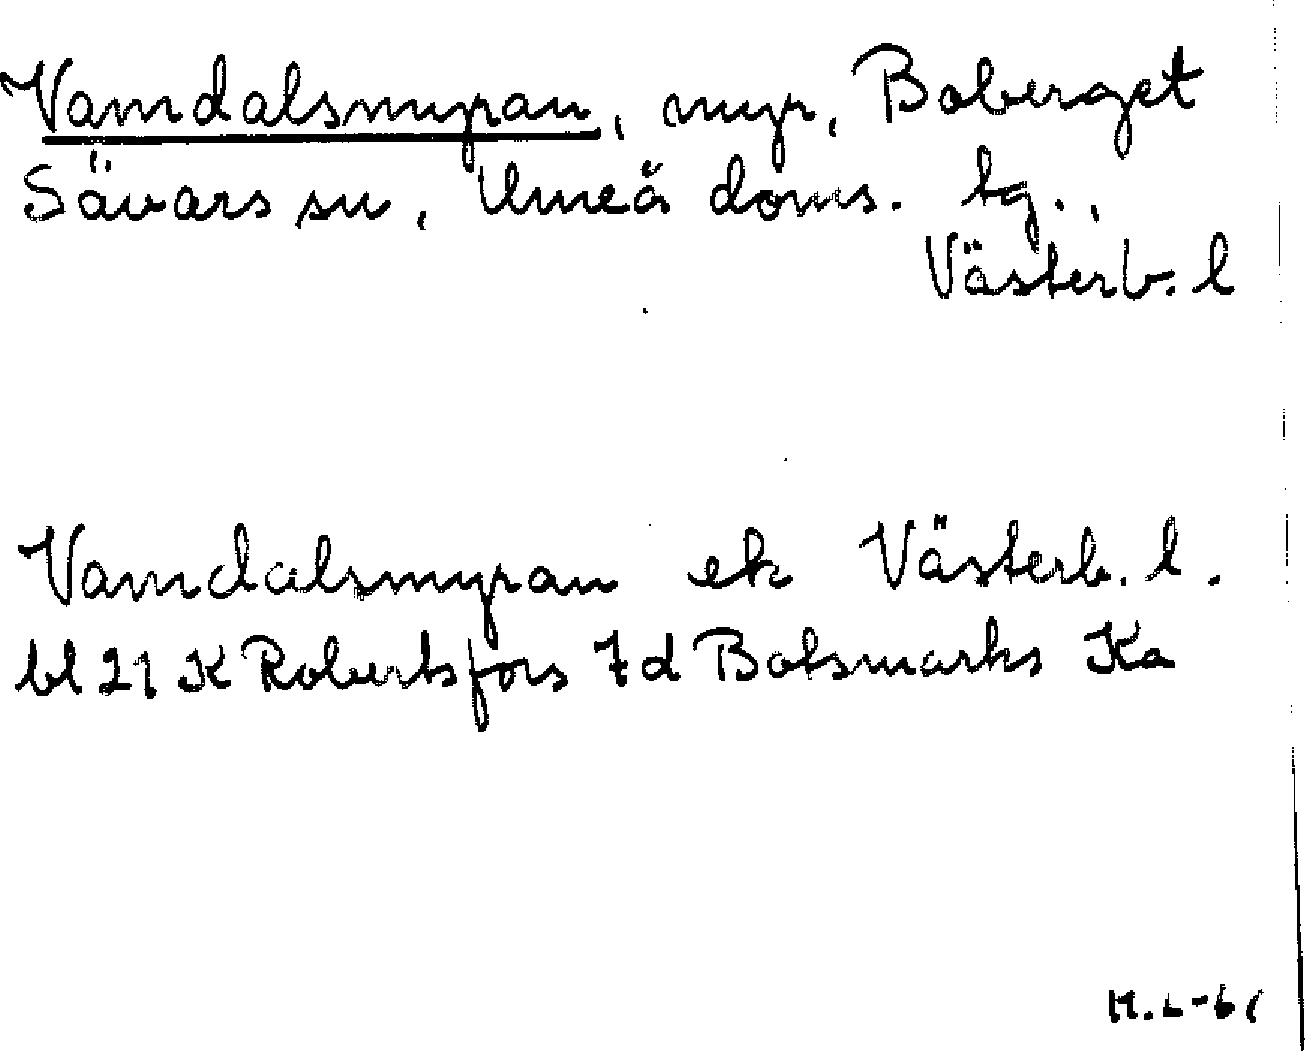 Vamdalsmyran, myr, Boberget
Sävars sn, Umeå doms. tg.,
Västerb. l
Vamdalsmyran ek Västerb. l.
bl 21 K Robertsfors 7d Botsmarks Ka
M.L-61